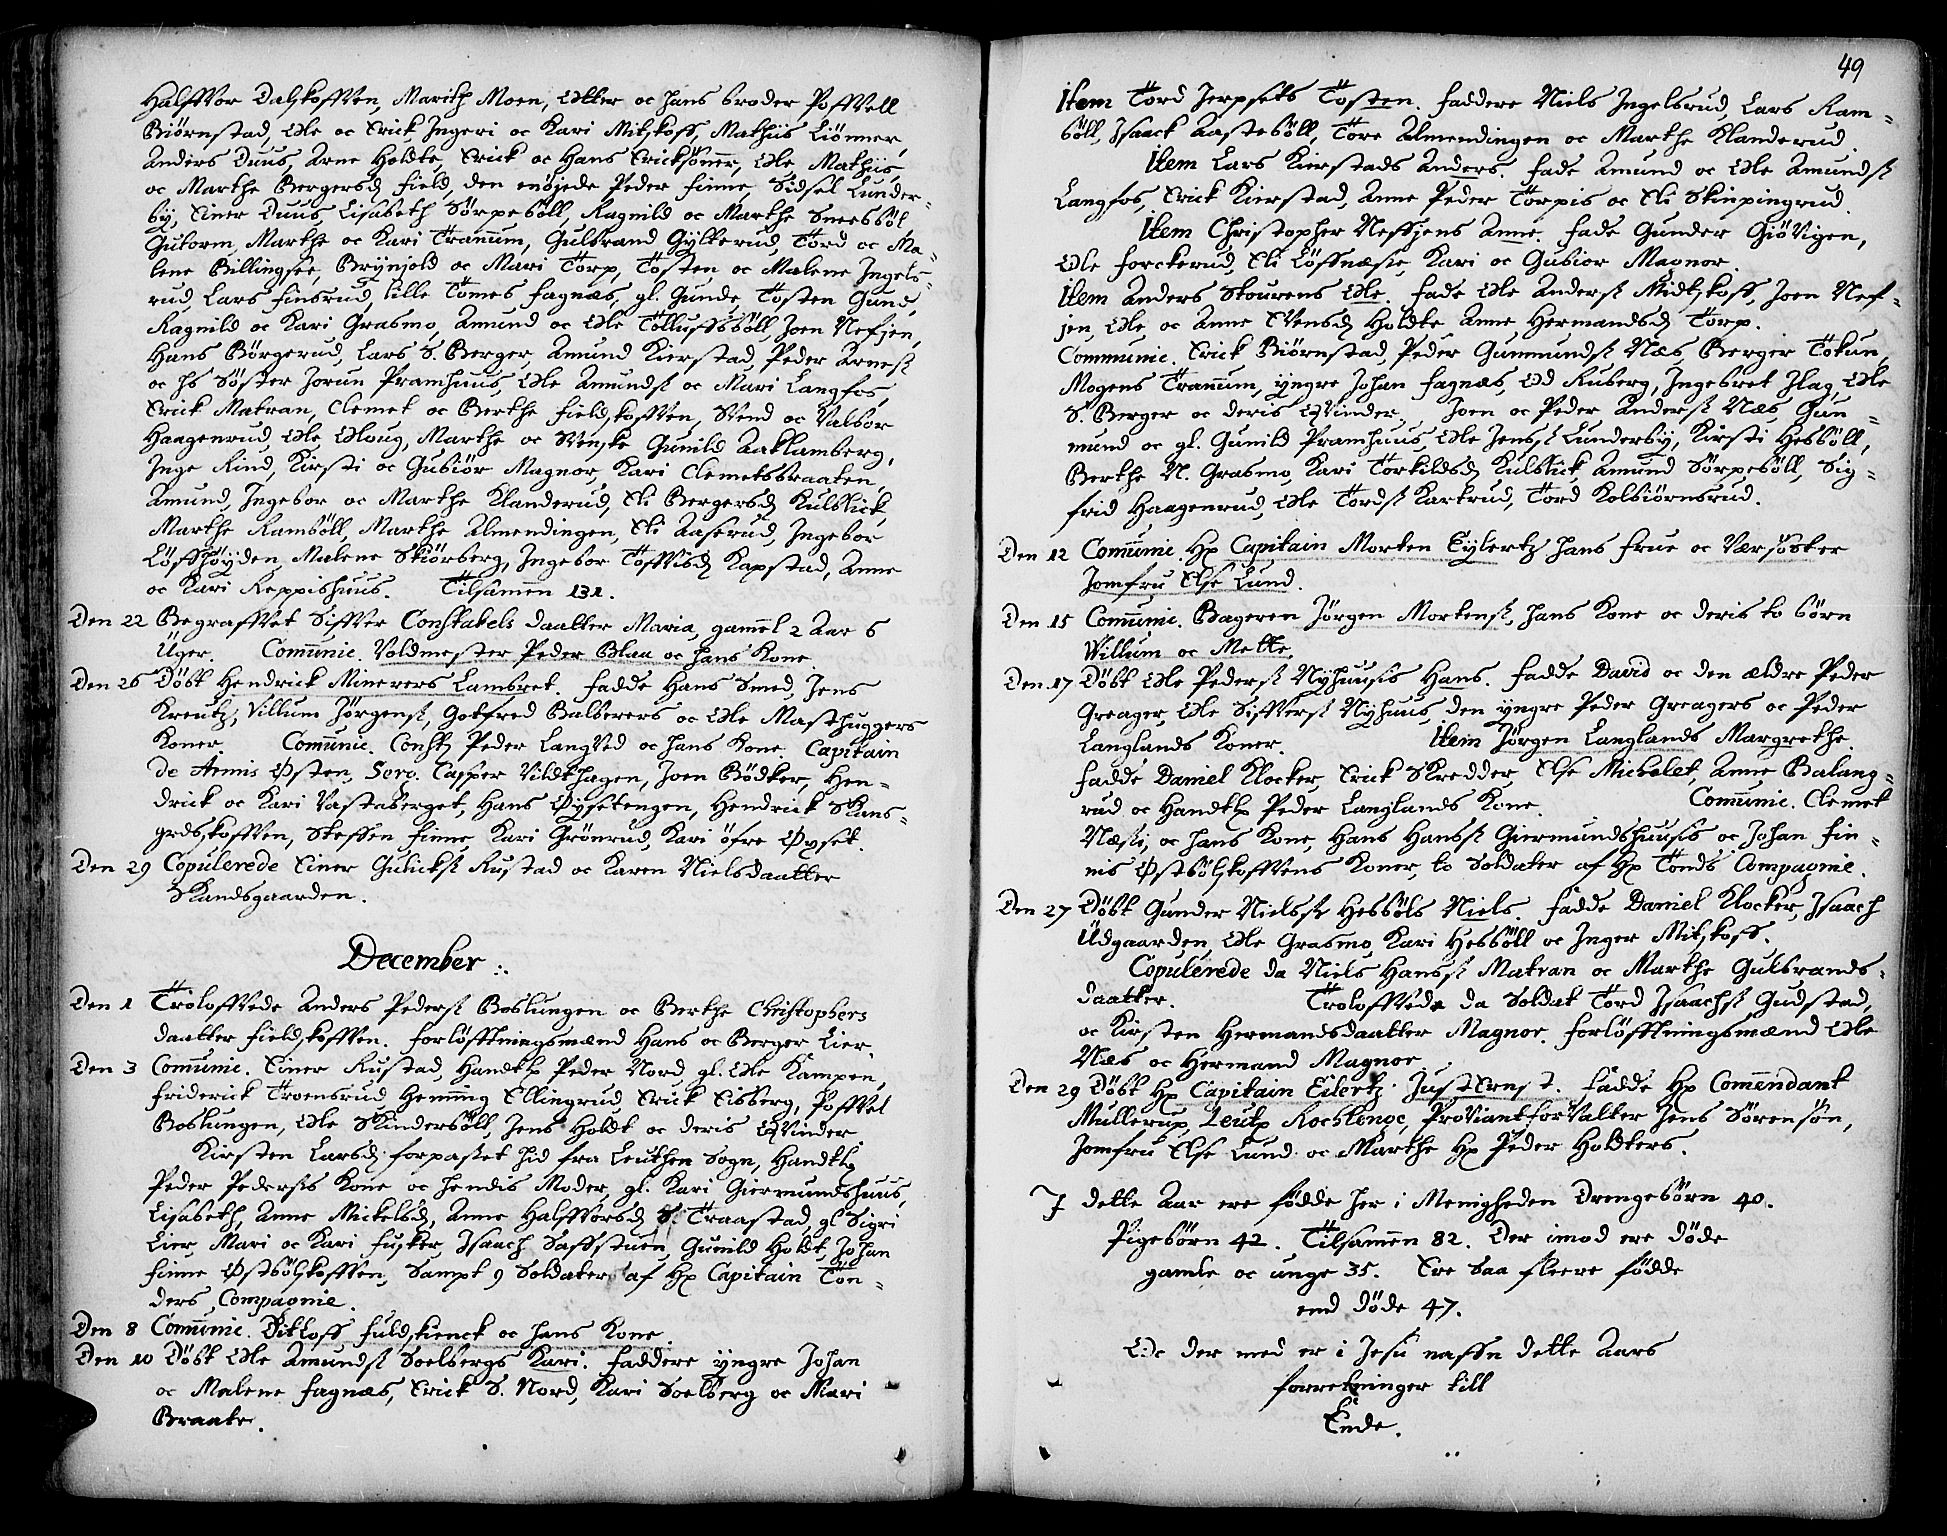 Halffvor Dalskoffven, Marith Moen, Olle oc hans broder Poffvell
Biørnstad, Ole oc Erick Ingeri oc Kari Mitskoff, Mathiis Liønner,
Anders Duus, Arne Holdte, Erick oc Hans Ericksønner, Ole Mathiis,
oc Marthe Bergersd. Field, den enøjede Peder Finne, Sidsel Lunder=
by, Einer Duus, Lisabeth Sørpebøll, Ragnild oc Marthe Sneesbøl
Gutorm, Marthe oc Kari Tranum, Gulbrand Gylterud, Tord oc Ma=
lene Billingsøe, Brynjold oc Mari Torp, Tosten oc Malene Ingels=
rud, Lars Finsrud, lille Tomes Fagnæs, gl. Gunde, Tosten Gund,
Ragnild oc Kari Grasmo, Amund oc Ole Tolluffsbøll, Joen Nefjen,
Hans Børgerud, Lars S. Berger, Amund Kierstad, Peder Arnes.
oc hs Søster Jorun Pramhuus, Ole Amunds. oc Mari Langfos,
Erick Matran, Clemet oc Berthe Fieldskoffven, Svend oc Valbor
Haagenrud, Ole, Ollouug, Marthe oc Svenske Gunild Aaklamberg,
Inge Rind, Kirsti oc Gubiør Magnor, Kari Clemetsbraaten,
Amund, Ingebor oc Marthe Klanderud, Eli Bergersd. Kulblick,
Marthe Rambøll, Marthe Almendingen, Eli Aaserud, Ingebor
Løffhøyden, Malene Skiørberg, Ingebor Toffvisd. Kapstad, Anne
oc Kari Reppishuus. Tilsamen 131.
Den 22 Begraffvet Siffver Constabels daatter Maria, gamel 2 Aar 6
Uger. Comunic. Voldmester Peder Blaa oc hans Kone.
Den 26 Døbt Hendrick Minerers Lambret. Fadde Hans Smed, Jens
Kreutz, Villum Jørgens., Gotfred Balberers oc Ole Masthuggers
Koner. Comunic. Const. Peder Langved oc hans Kone. Capitain
de Armis Østen, Serg. Casper Vildthagen, Joen Bødker, Hen=
drick oc Kari Vastaberget, Hans Øysetengen, Hendrick Skans=
grdskoffven, Steffen Finne, Kari Grønrud, Kari øfre Øyset.
Den 29 Copulerede Einer Gulicks. Rustad oc Karen Nielsdaatter
Skandsgaarden.
December
Den 1 Troloffvede Anders Peders. Boslungen oc Berthe Christophers
daatter Fieldskoffven. Forløfftningsmænd Hans oc Berger Lier.
Den 3 Comunic. Einer Rustad, Handtl. Peder Nord, gl. Ole Kampen,
Friderick Troensrud, Heming Ellingrud, Erick Eisberg, Poffvel
Boslungen, Ole Skinderbøll, Jens Holdt oc deris Qvinder
Kirsten Larsd. forpasset hid fra Leuthen Sogn, Handtl.
Peder Pedersis Kone oc hendis Moder, gl. Kari Giermundshuus,
Lisabeth, Anne Mickelsd., Anne Halffvorsd. S. Traastad, gl. Sigri
Lier, Mari oc Kari Fusker, Isaach Saffstuen, Gunild Holdt, Johan
Finne Østbølskoffven, Sampt 9 Soldater af Hr. Capitain Tøn=
ders Compagnie.
Den 8 Comunic. Ditloff Fuldskienck oc hans Kone.
Den 10 Døbt Ole Amunds. Soelbergs Kari. Faddere yngre Johan
oc Malene Fagnæs, Erick S. Nord, Kari Soelberg oc Mari
Braate.
49
Item Tord Jerpsets Tosten. Faddere Niels Ingelsrud, Lars Ram=
bøll, Isaack Aastebøll, Tore Almendingen oc Marthe Klanderud.
Item Lars Kierstads Anders. Fade Amund oc Ole Amunds.
Langfos, Erick Kierstad, Anne Peder Torpis oc Eli Skinpingrud.
Item Christopher Neffjens Anne. Fade Gunder Giøvigen,
Ole Forckerud, Eli Løffnæsie, Kari oc Gubior Magnor.
Item Anders Stourens Ole. Fade Ole Anders. Midtskoff, Joen Nef=
jen, Ole oc Anne Svensd. Holdte, Anne Hermandsd. Torp.
Communic. Erick Biørnstad, Peder Gunmunds. Næs, Berger Tokun,
Mogens Tranum, yngre Johan Fagnæs, Od Ruberg, Ingebret Ilag, Ole
S. Berger oc deris Qvinder. Joen oc Peder Anders. Næs, Gun=
mund oc gl. Gunild Pramhuus, Ole Jens. Lunderby, Kirsti Hesbøll,
Berthe N. Grasmo, Kari Torkildsd. Kulblick, Amund Sørpebøll, Sig=
frid Haagenrud, Ole Tords. Kartrud, Tord Kolbiørnsrud.
Den 12 Comunic. Hr. Capitain Morten Eylertz hans Frue oc Værsøster
Jomfru Else Lund.
Den 15 Comunic. Bageren Jørgen Mortens., hans Kone oc deris to børn
Willum oc Mette.
Den 17 Døbt Ole Peders. Nyhuusis Hans. Fadde David oc den ældre Peder
Greager, Ole Siffvers. Nyhuus, den yngre Peder Greagers oc Peder
Langlands Koner. Item Jørgen Langlands Margrethe.
Fadde Daniel Klocker, Erick Skredder, Else Michelet, Anne Balang=
rud oc Handtl. Peder Langlands Kone. Comunic. Clemet
Næsti, oc hans Kone, Hans Hans. Giermundshuusis oc Johan Fin=
nis Østbølskoffvens Koner, to Soldater af Hr. Tonds Compagnie.
Den 27 Døbt Gunder Nielss. Hesbøls Niels. Fadde Daniel Klocker, Isaach
Udgaarden, Ole Grasmo, Kari Hesbøll oc Inger Mitskoff.
Copulerede da Niels Hans. Matran oc Marthe Gulbrands=
daatter. Troloffvede da Soldat Tord Isaachs. Gudstad,
oc Kirsten Hermandsdaatter Magnor. Forløfftningsmænd Ole
Næs oc Hermand Magnor.
Den 29 Døbt Hr. Capitain Eilertz Just Ernst. Fadde Hr. Comendant
Mullerup, Leut. Rochlenge, Proviantforvalter Jens Sørensøn,
Jomfru Else Lund oc Marthe Hr. Peder Holdters.
J dette Aar ere fødde her i Menigheden Drengebørn 40.
Pigebørn 42. Tilsamen 82. Der imod ere døde
gamle oc unge 35. Ere saa fleere fødde
end døde 47.
Oc der med er i Jesu naffn dette Aars
forretninger till
Ende.